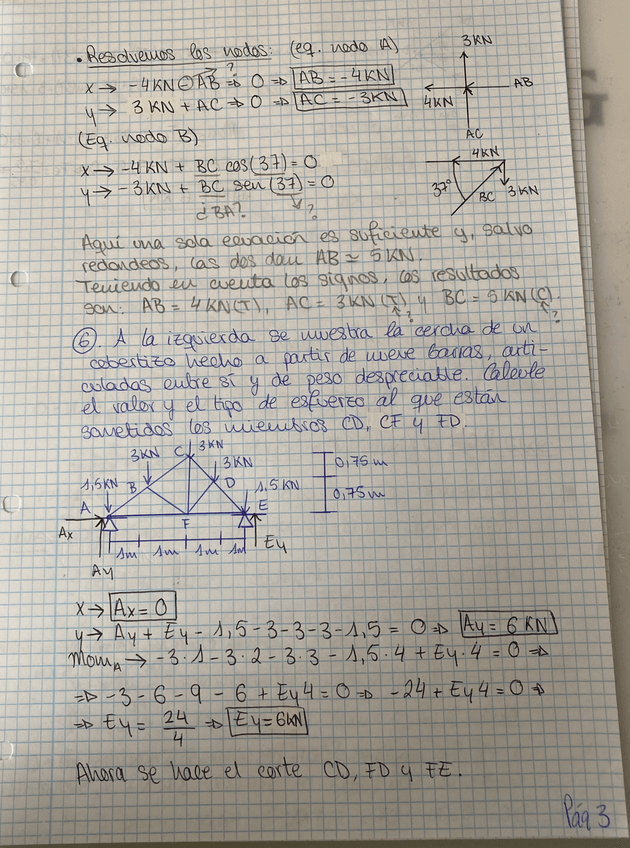 • Resolvemos los nodos: (eq. nodo A)
x → -4KN ⊖ AB ⇒ 0 ⇒ AB = -4KN
?
y → 3 KN + AC ⇒ 0 ⇒ AC = -3KN
3KN
4KN
AB
AC
(Eq. nodo B)
x → -4KN + BC cos(37) = 0
y → -3KN + BC sen(37) = 0
¿BA?
?
4KN
37°
BC
3KN
Aquí una sola ecuación es suficiente y, salvo
redondeos, las dos dan AB = 5KN.
Teniendo en cuenta los signos, los resultados
son: AB = 4KN(T), AC = 3KN(T) y BC = 5KN(C).
?
?
⑥. A la izquierda se muestra la cercha de un
cobertizo hecho a partir de nueve barras, arti-
culadas entre sí y de peso despreciable. Calcule
el valor y el tipo de esfuerzo al que están
sometidos los miembros CD, CF y FD.
C
3KN
3KN
3KN
1,5KN
B
D
1,5 KN
A
E
F
Ax
Ay
Ey
1m
1m
1m
1m
0,75m
0,75m
x → Ax = 0
y → Ay + Ey - 1,5-3-3-3-1,5 = 0 ⇒ Ay = 6 KN
Mom_A → -3·1-3·2-3·3-1,5·4+Ey·4 = 0 ⇒
⇒ -3-6-9-6+Ey4 = 0 ⇒ -24+Ey4 = 0 ⇒
⇒ Ey = 24/4 ⇒ Ey=6KN
Ahora se hace el corte CD, FD y FE.
Pág 3